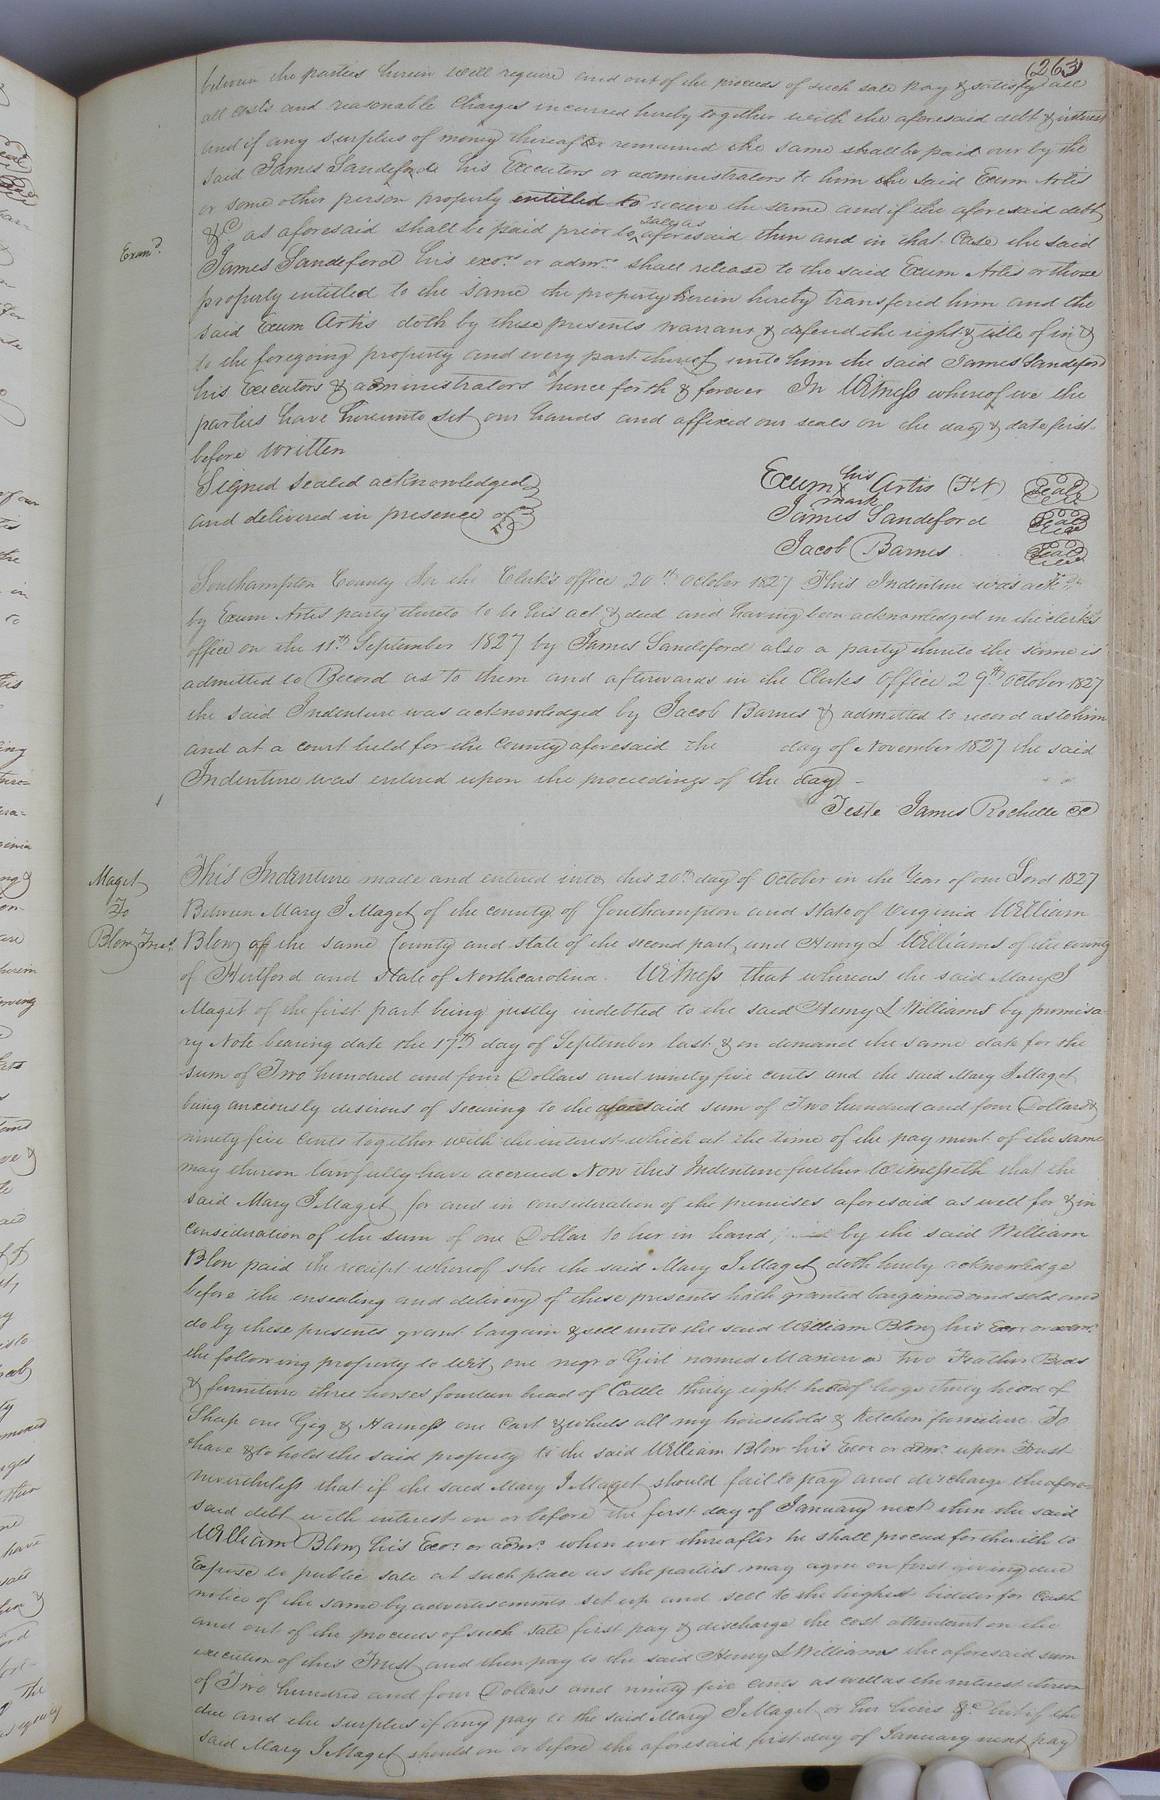 (263)
between the parties herein will require and out of the proceeds of such sale pay & satisfy all
all costs and reasonable Charges incurred hereby together with the aforesaid debt & interest
and if any surplus of money thereafter remained the same shall be paid over by the
said James Sandeforde his Executors or administrators to him the said Exum Artis
or some other person properly entitled to recieve the same and if the aforesaid debt
&c as aforesaid shall be paid prior to sale as aforesaid then and in that Case the said
Exam.d
James Sandeford his exors or admrs shall release to the said Exum Artis or those
properly entitled to the same the property herein hereby transfered him and the
said Exum Artis doth by these presents warrant & defend the right & title of in &
to the foregoing property and every part thereof unto him the said James Sandeford
his Executors & administrators hence forth & forever In Witness whereof we the
parties have hereunto set our hands and affixed our seals on the day & date first
before written
Signed sealed acknowledged
and delivered in presence of
Exum his X mark Artis (FN) Seal
James Sandeford Seal
Jacob Barnes Seal
Southampton County In the Clerk's office 20th October 1827 This Indenture was ackd
by Exum Artis party thereto to be his act & deed and having been acknowledged in the clerks
office on the 11th September 1827 by James Sandeford also a party thereto the same is
admitted to Record as to them and afterwards in the Clerks Office 29th October 1827
the said Indenture was acknowledged by Jacob Barnes & admitted to record as to him
and at a court held for the County aforesaid the day of November 1827 the said
Indenture was entered upon the proceedings of the day
Teste James Rochelle CC
Maget
To
Blow Trus.
This Indenture made and entered into this 20th day of October in the Year of our Lord 1827
Between Mary J Maget of the county of Southampton and state of Virginia William
Blow of the same County and state of the second part and Henry L Williams of the county
of Hertford and State of Northcarolina. Witness that whereas the said Mary J
Maget of the first part being justly indebted to the said Henry L Williams by promisa-
ry Note bearing date the 17th day of September last & on demand the same date for the
sum of Two hundred and four Dollars and ninety five cents and the said Mary J Maget
being anxiously desirous of securing to the aforesaid sum of Two hundred and four Dollars &
ninety five Cents together with the interest which at the time of the payment of the same
may thereon lawfully have accrued Now this Indenture further Witnesseth that the
said Mary J Maget for and in consideration of the premises aforesaid as well for & in
consideration of the sum of one Dollar to her in hand; by the said William
Blow paid the receipt whereof she the said Mary J Maget doth hereby acknowledge
before the ensealing and delivery of these presents hath granted bargained and sold and
do by these presents grant bargain & sell unto the said William Blow his Exor or admr
the following property to Wit, one negro Girl named Manerva two Feather Beds
& furniture three horses fourteen head of Cattle thirty eight head of hogs thirty head of
Sheep one Gig & Harness one Cart & wheels all my household & Kitchen furniture To
have & to hold the said property to the said William Blow his Exor or admr upon Trust
nevertheless that if the said Mary J Maget should fail to pay and discharge the afore-
said debt with interest on or before the first day of January next then the said
William Blow his Exor or admr when ever thereafter he shall proceed forthwith to
Expose to public sale at such place as the parties may agree on first giving due
notice of the same by advertisements set up and sell to the highest bidder for Cash
and out of the proceeds of such sale first pay & discharge the cost attendant on the
execution of this Trust and then pay to the said Henry L Williams the aforesaid sum
of Two hundred and four Dollars and ninety five Cents as well as the interest thereon
due and the surplus if any pay to the said Mary J Maget or her heirs &c but if the
said Mary J Maget should on or before the aforesaid first day of January next pay